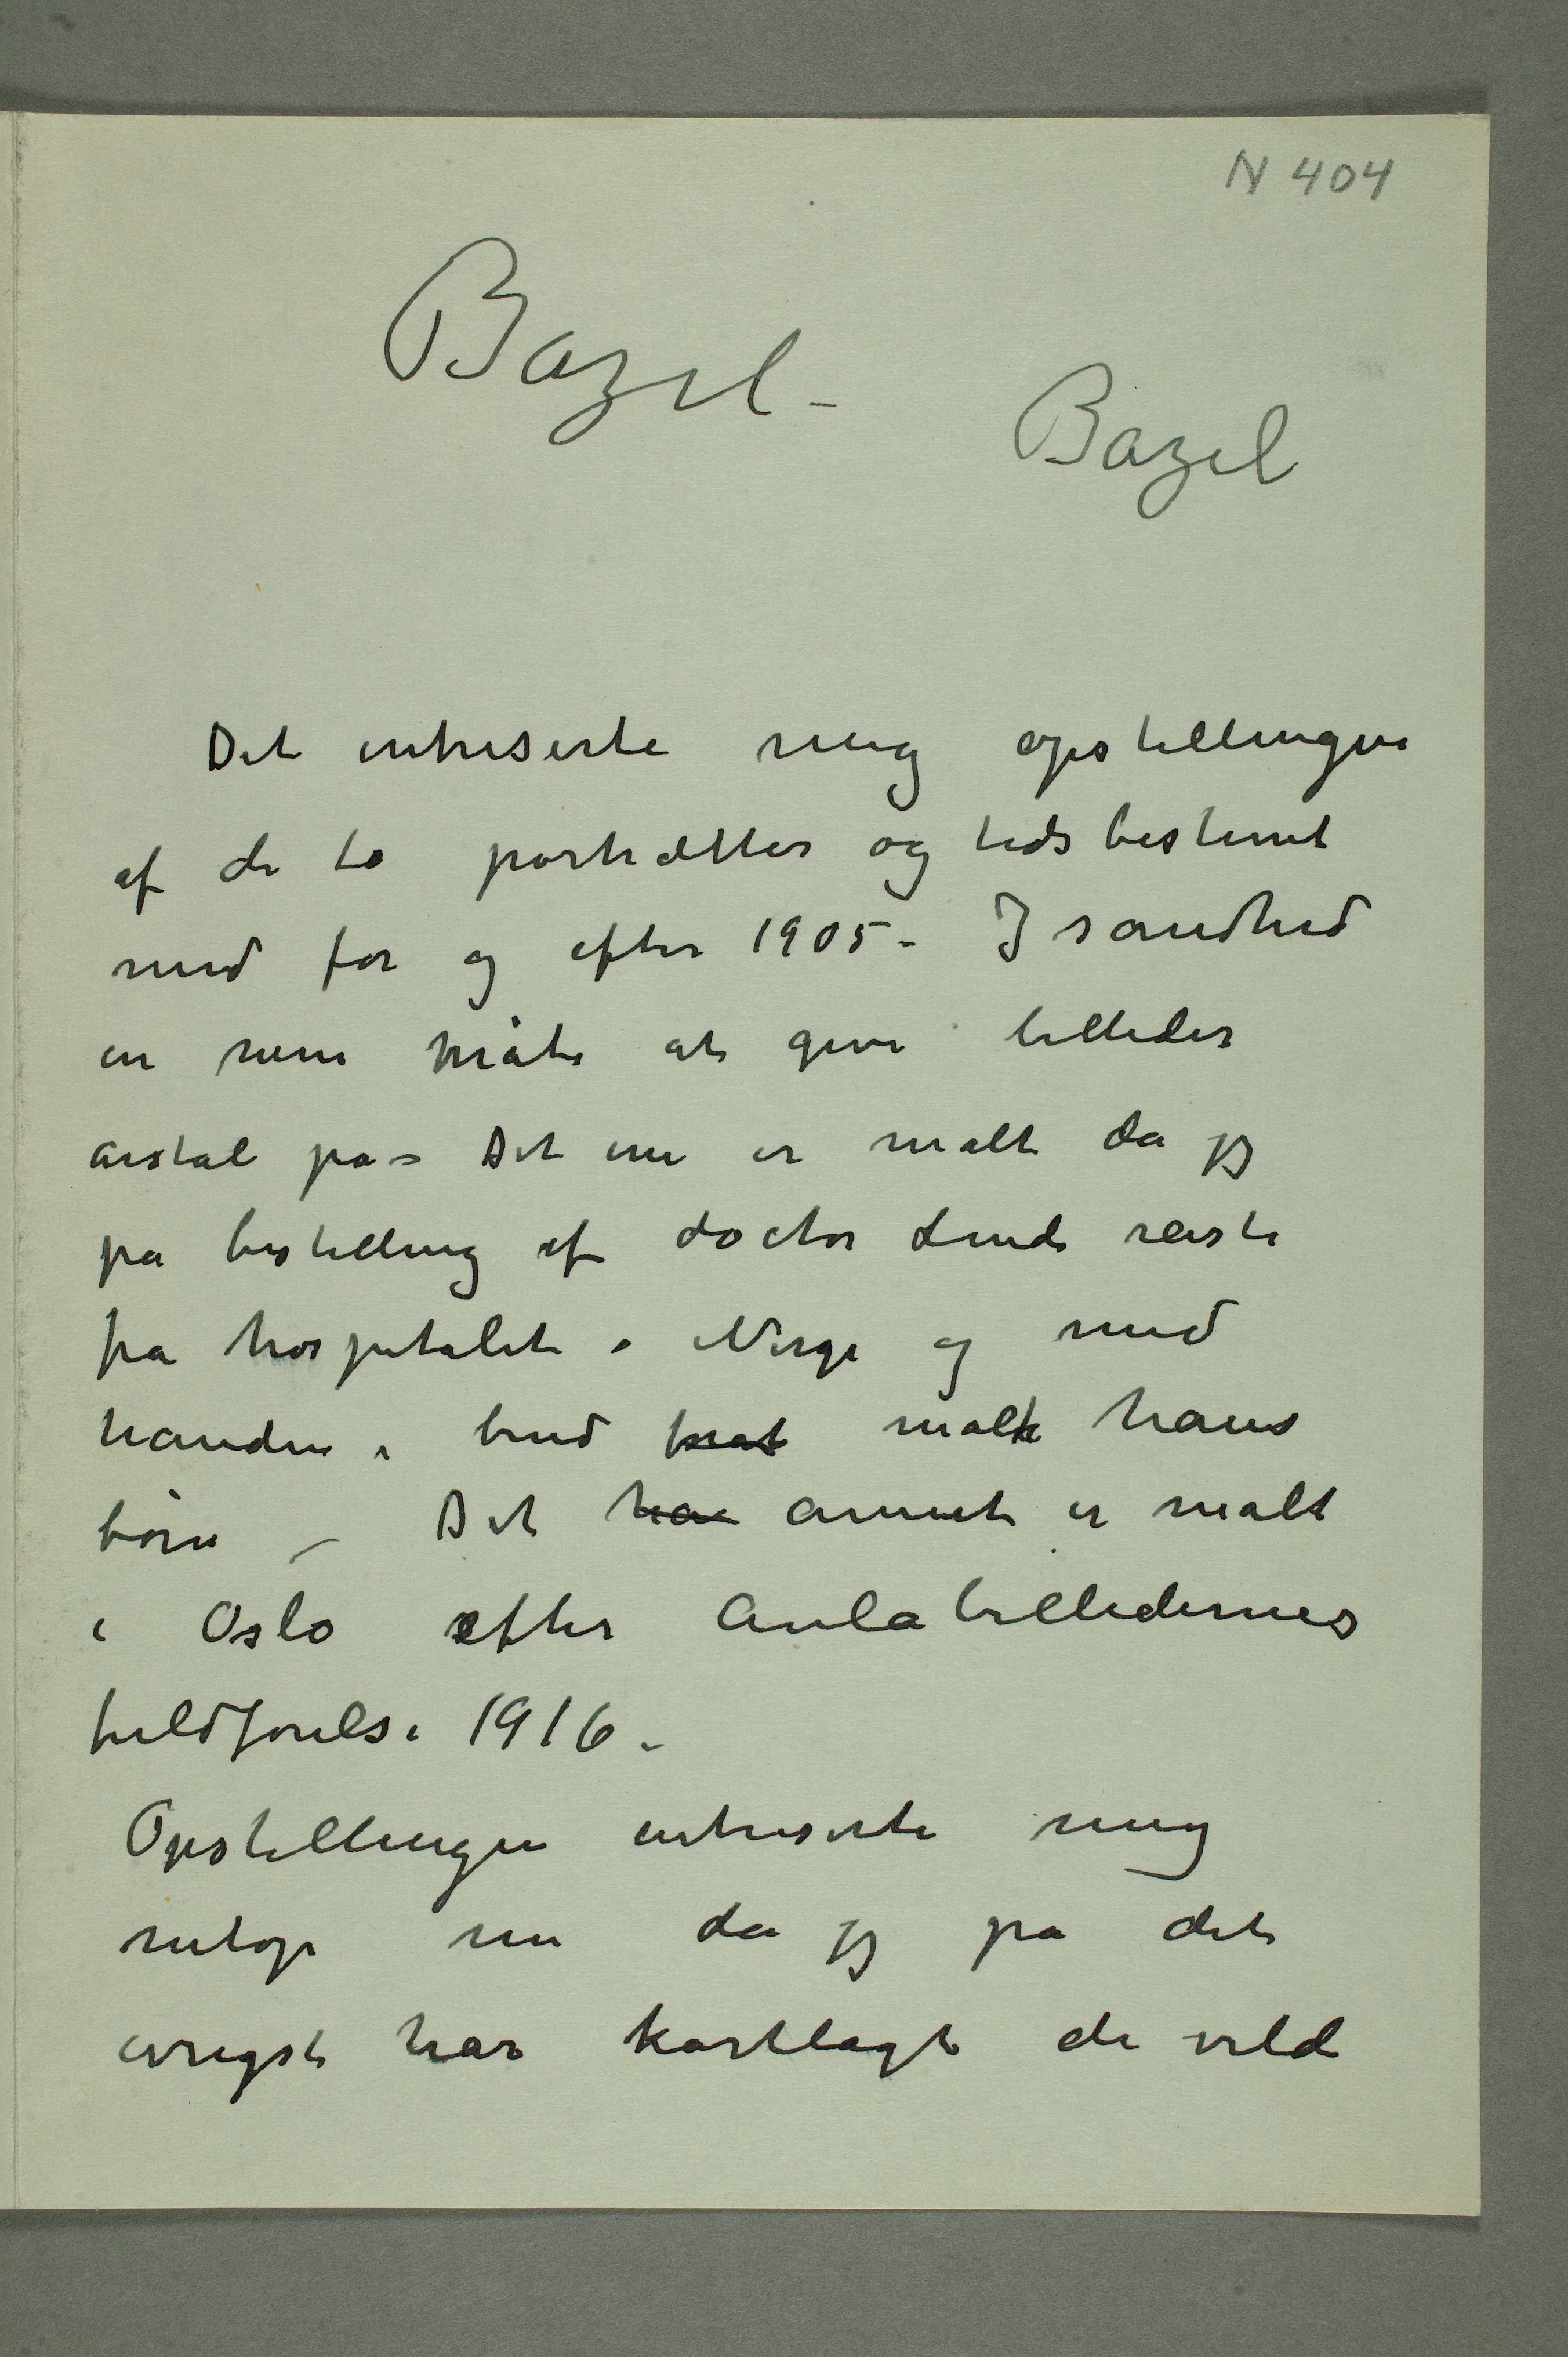 N 404
Bazel –
Bazel
Det intreserte mig opstillingen
af de to portrætter og tidsbestemt
med før og efter 1905 – I sandhed
en nem måte at give billeder
årstal på – Det ene er malt da jeg
på bestilling af doctor Linde reiste
fra hospitalet i Norge og med
hånden i bind malte hans
børn – Det annet er malt
i Oslo efter Aulabilledernes
fuldførelse 1916 –
Opstillingen intreserte mig
netop nu da jeg på det
ivrigste har kartlagt de vild